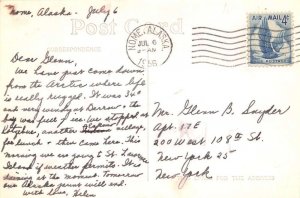 Nome, Alaska. July 6
Post Card
CORRESPONDENCE
NOME, ALASKA
JUL 6
AM
1956
AIR MAIL 4¢
Dear Glenn,
We have just come down
from the Arctic where life
is really rugged. It was 34°
and very windy at Barrow - the
bay was full of ice. We stopped at
Kotzebue, another Eskimo village,
for lunch & then came here. This
morning we are going to St. Lawrence
Island if weather permits. It's
raining at the moment. Tomorrow
our Alaska jaunt will end.
With love, Helen
Mr. Glenn B. Snyder
Apt. 17E
200 West 108th St.
New York 25
New York
FOR THE ADDRESS